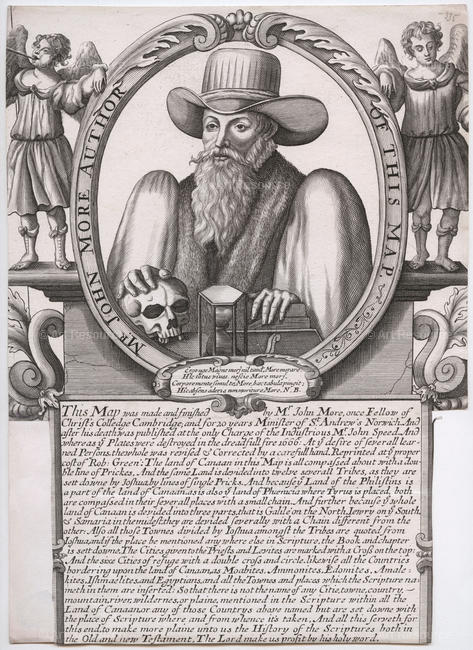 Mr JOHN MORE AUTHOR OF THIS MAP
This Map was made and finished by Mr. John More, once Fellow of
Christ's Colledge Cambridge, and for 20 years Minister of St. Andrew's Norwich. And
after his death was published at the only Charge of the Industrious Mr. John Speed. And
whereas ye Plates were destroyed in the dreadfull fire 1666. At ye desire of severall lear-
ned Persons. the whole was revised & Corrected by a carefull hand. Reprinted at ye proper
cost of Rob: Green: The land of Canaan in this Map is all compassed about with a dou-
ble line of Prickes, And the same Land is devided into twelve severall Tribes, as they are
sett downe by Joshua by lines of single Pricks, And because ye Land of the Philistins is
a part of the Land of Canaan as is also ye land of Phenicia where Tyrus is placed, both
are compassed in their severall places with a small chain. And further because ye whole
land of Canaan is devided into three parts, that is Galile on the North, Jewry on ye South,
& Samaria in the midest they are devided severally with a Chain different from the
other. Also all those Townes devided by Joshua amongst the Tribes are quoted from
Joshua, and if the place be mentioned any where else in Scripture, the Book and chapter
is set downe. The Cities given to the Priests and Levites are marked with a Cross on the top:
And the sixe Cities of refuge with a double cross and circle. likewise all the Countries
bordering upon the Land of Canaan, as Moabites, Ammonites, Edomites, Amale-
kites, Ishmaelites, and Egyptians, and all the Townes and places which the Scripture na-
meth in them are inserted: So that there is not the name of any Citie, towne, country,
mountain, river, wildernes, or plaine, mentioned in the Scripture within all the
Land of Canaan or any of those Countrys above named but are set downe with
the place of Scripture where and from whence it's taken, And all this serveth for
this end, to make more plaine unto us the History of the Scriptures both in
the Old and new Testament. The Lord make us profit by his holy word.